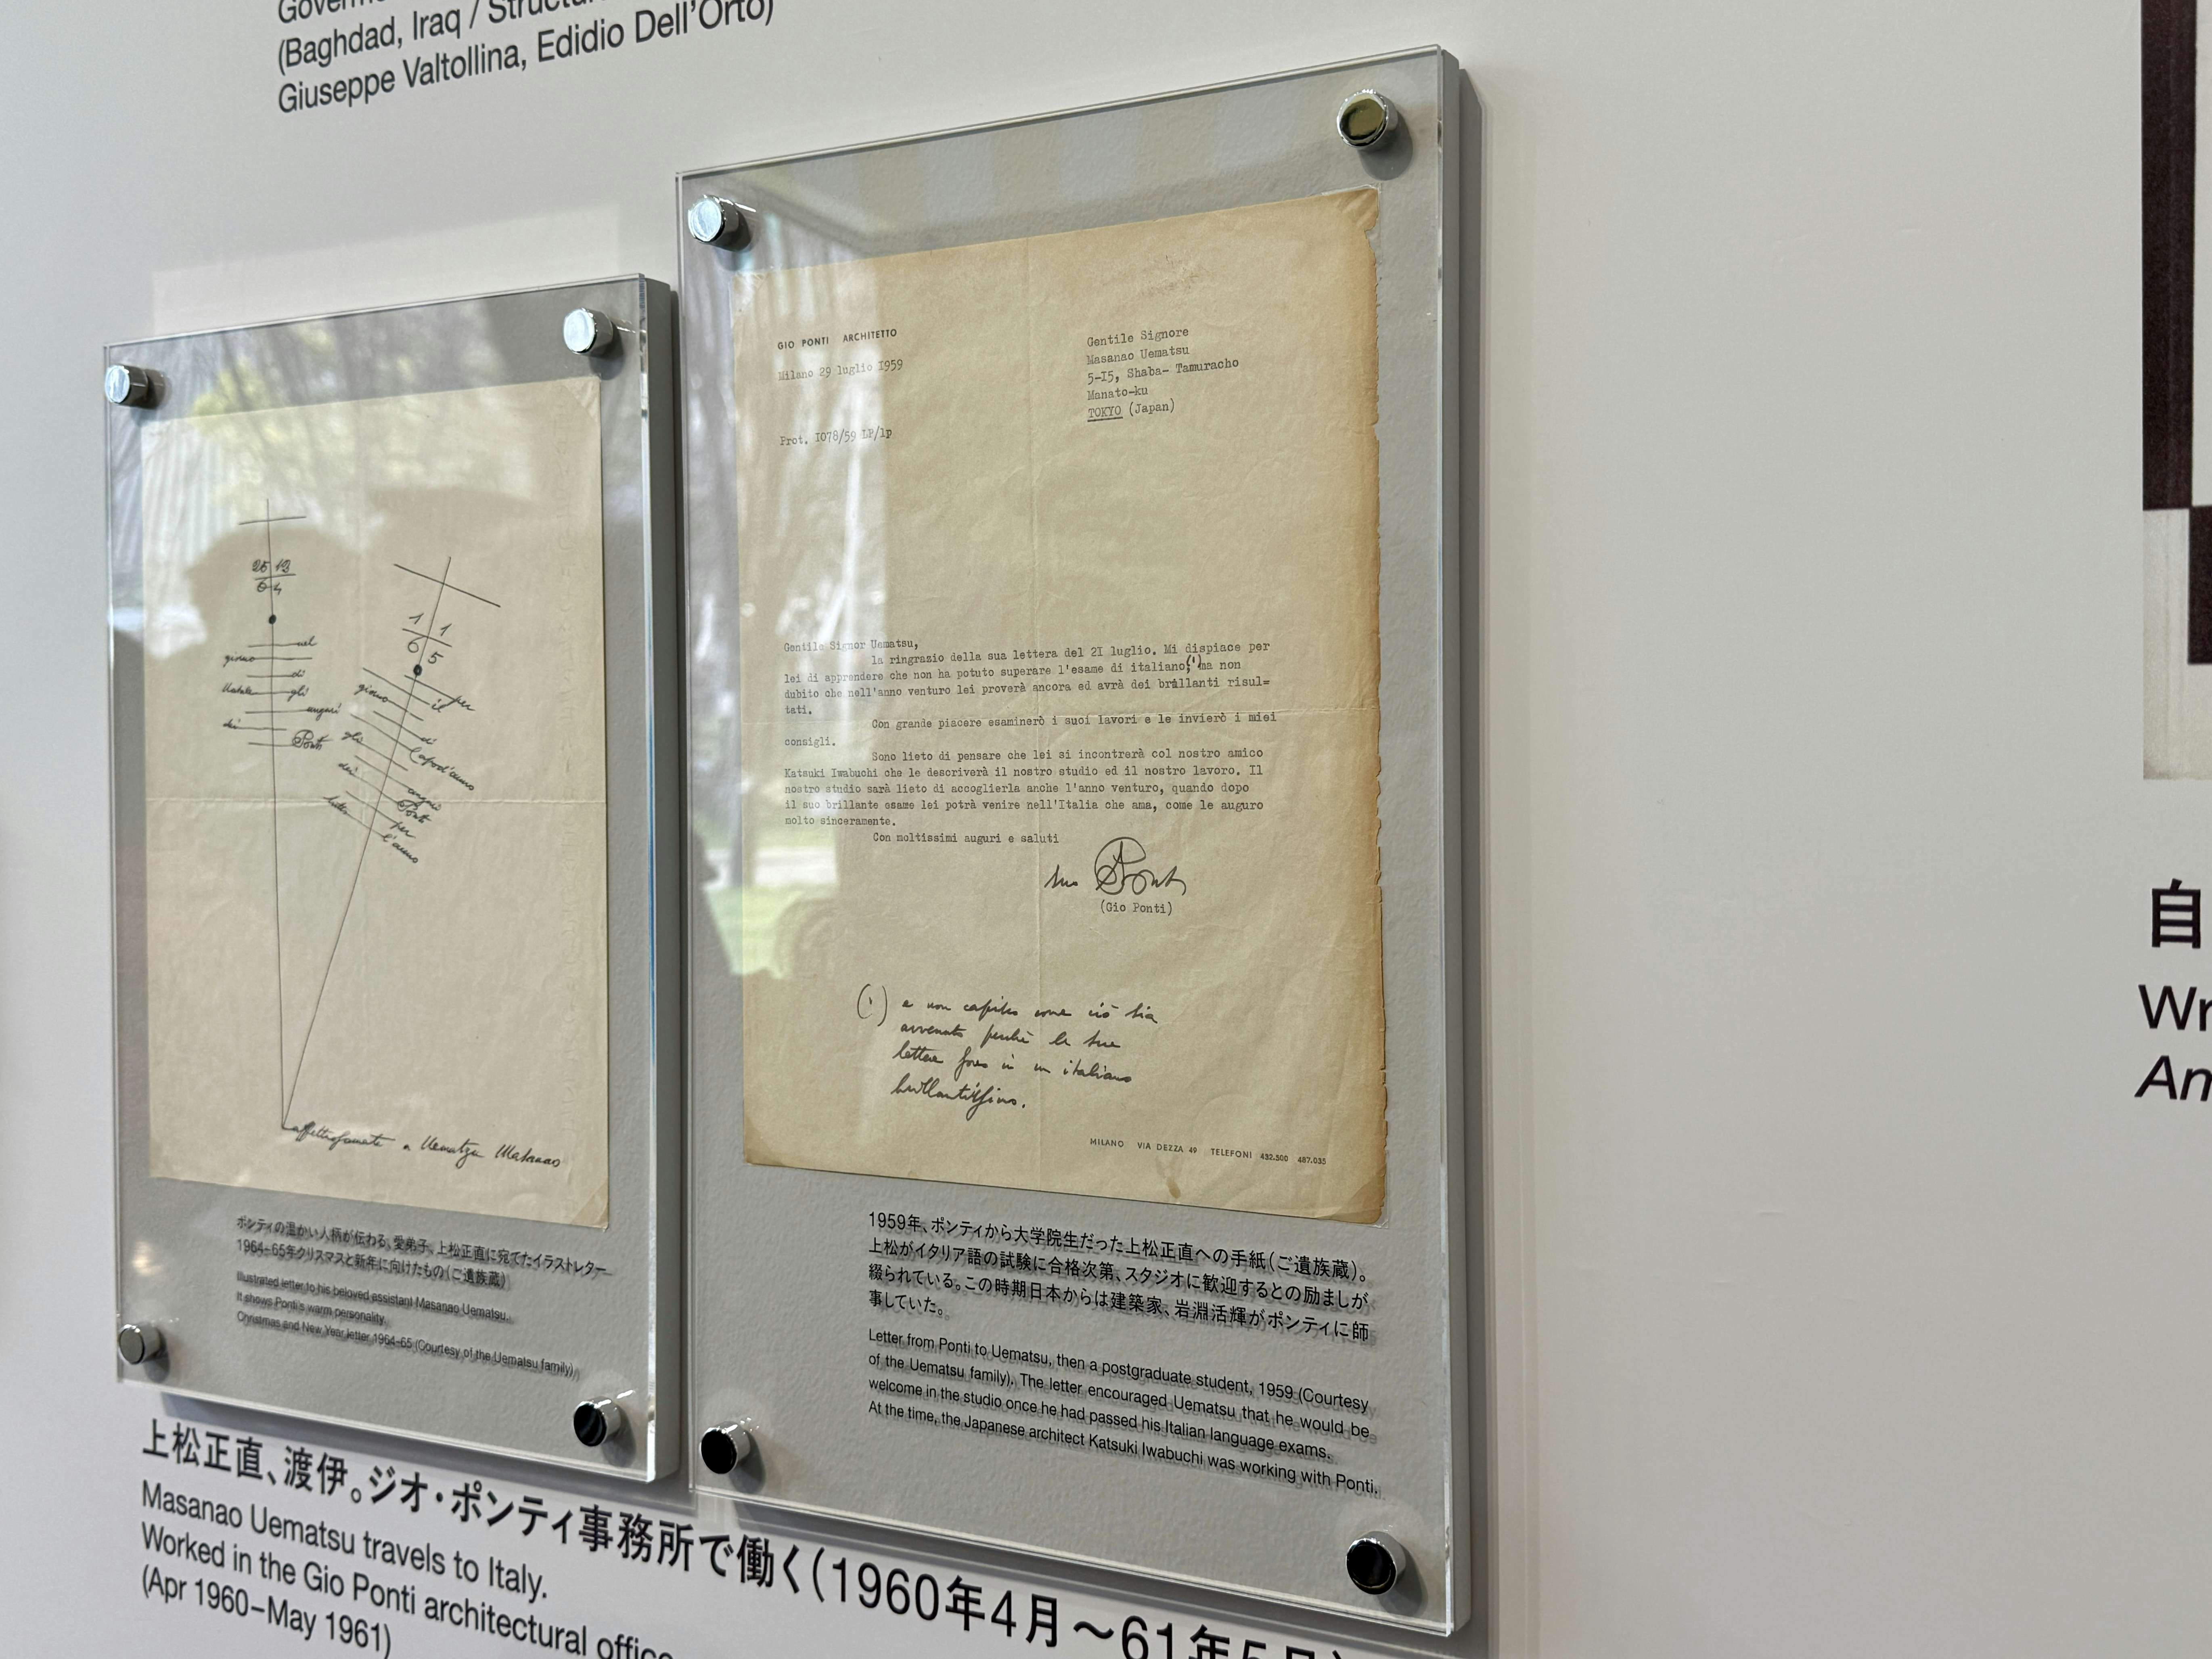 (Baghdad, Iraq / Structur
Giuseppe Valtollina, Edidio Dell'Orto)
25 12
6 4
nel
giorno
di
Natale gli
auguri
dei
Ponti
1 1
6 5
per
il
giorno
di
Capod'anno
gli
auguri
dei
Ponti
per
l'anno
affettuosamente a Uematzu Masanao
ポンティの温かい人柄が伝わる、愛弟子、上松正直に宛てたイラストレター
1964–65年クリスマスと新年に向けたもの(ご遺族蔵)
Illustrated letter to his beloved assistant Masanao Uematsu.
It shows Ponti's warm personality.
Christmas and New Year letter 1964–65 (Courtesy of the Uematsu family)
GIO PONTI ARCHITETTO
Milano 29 luglio I959
Prot. I078/59 LP/lp
Gentile Signore
Masanao Uematsu
5-I5, Shaba- Tamuracho
Manato-ku
TOKYO (Japan)
Gentile Signor Uematsu,
la ringrazio della sua lettera del 2I luglio. Mi dispiace per
lei di apprendere che non ha potuto superare l'esame di italiano;(1)ma non
dubito che nell'anno venturo lei proverà ancora ed avrà dei brillanti risul=
tati.
Con grande piacere esaminerò i suoi lavori e le invierò i miei
consigli.
Sono lieto di pensare che lei si incontrerà col nostro amico
Katsuki Iwabuchi che le descriverà il nostro studio ed il nostro lavoro. Il
nostro studio sarà lieto di accoglierla anche l'anno venturo, quando dopo
il suo brillante esame lei potrà venire nell'Italia che ama, come le auguro
molto sinceramente.
Con moltissimi auguri e saluti
suo Ponti
(Gio Ponti)
(1) e non capisco come ciò sia
avvenuto perchè le sue
lettere sono in un italiano
brillantissimo.
MILANO VIA DEZZA 49 TELEFONI 432.500 487.035
1959年、ポンティから大学院生だった上松正直への手紙(ご遺族蔵)。
上松がイタリア語の試験に合格次第、スタジオに歓迎するとの励ましが
綴られている。この時期日本からは建築家、岩淵活輝がポンティに師
事していた。
Letter from Ponti to Uematsu, then a postgraduate student, 1959 (Courtesy
of the Uematsu family). The letter encouraged Uematsu that he would be
welcome in the studio once he had passed his Italian language exams.
At the time, the Japanese architect Katsuki Iwabuchi was working with Ponti.
上松正直、渡伊。ジオ・ポンティ事務所で働く(1960年4月〜61年5月)
Masanao Uematsu travels to Italy.
Worked in the Gio Ponti architectural office
(Apr 1960–May 1961)
自
Wr
An